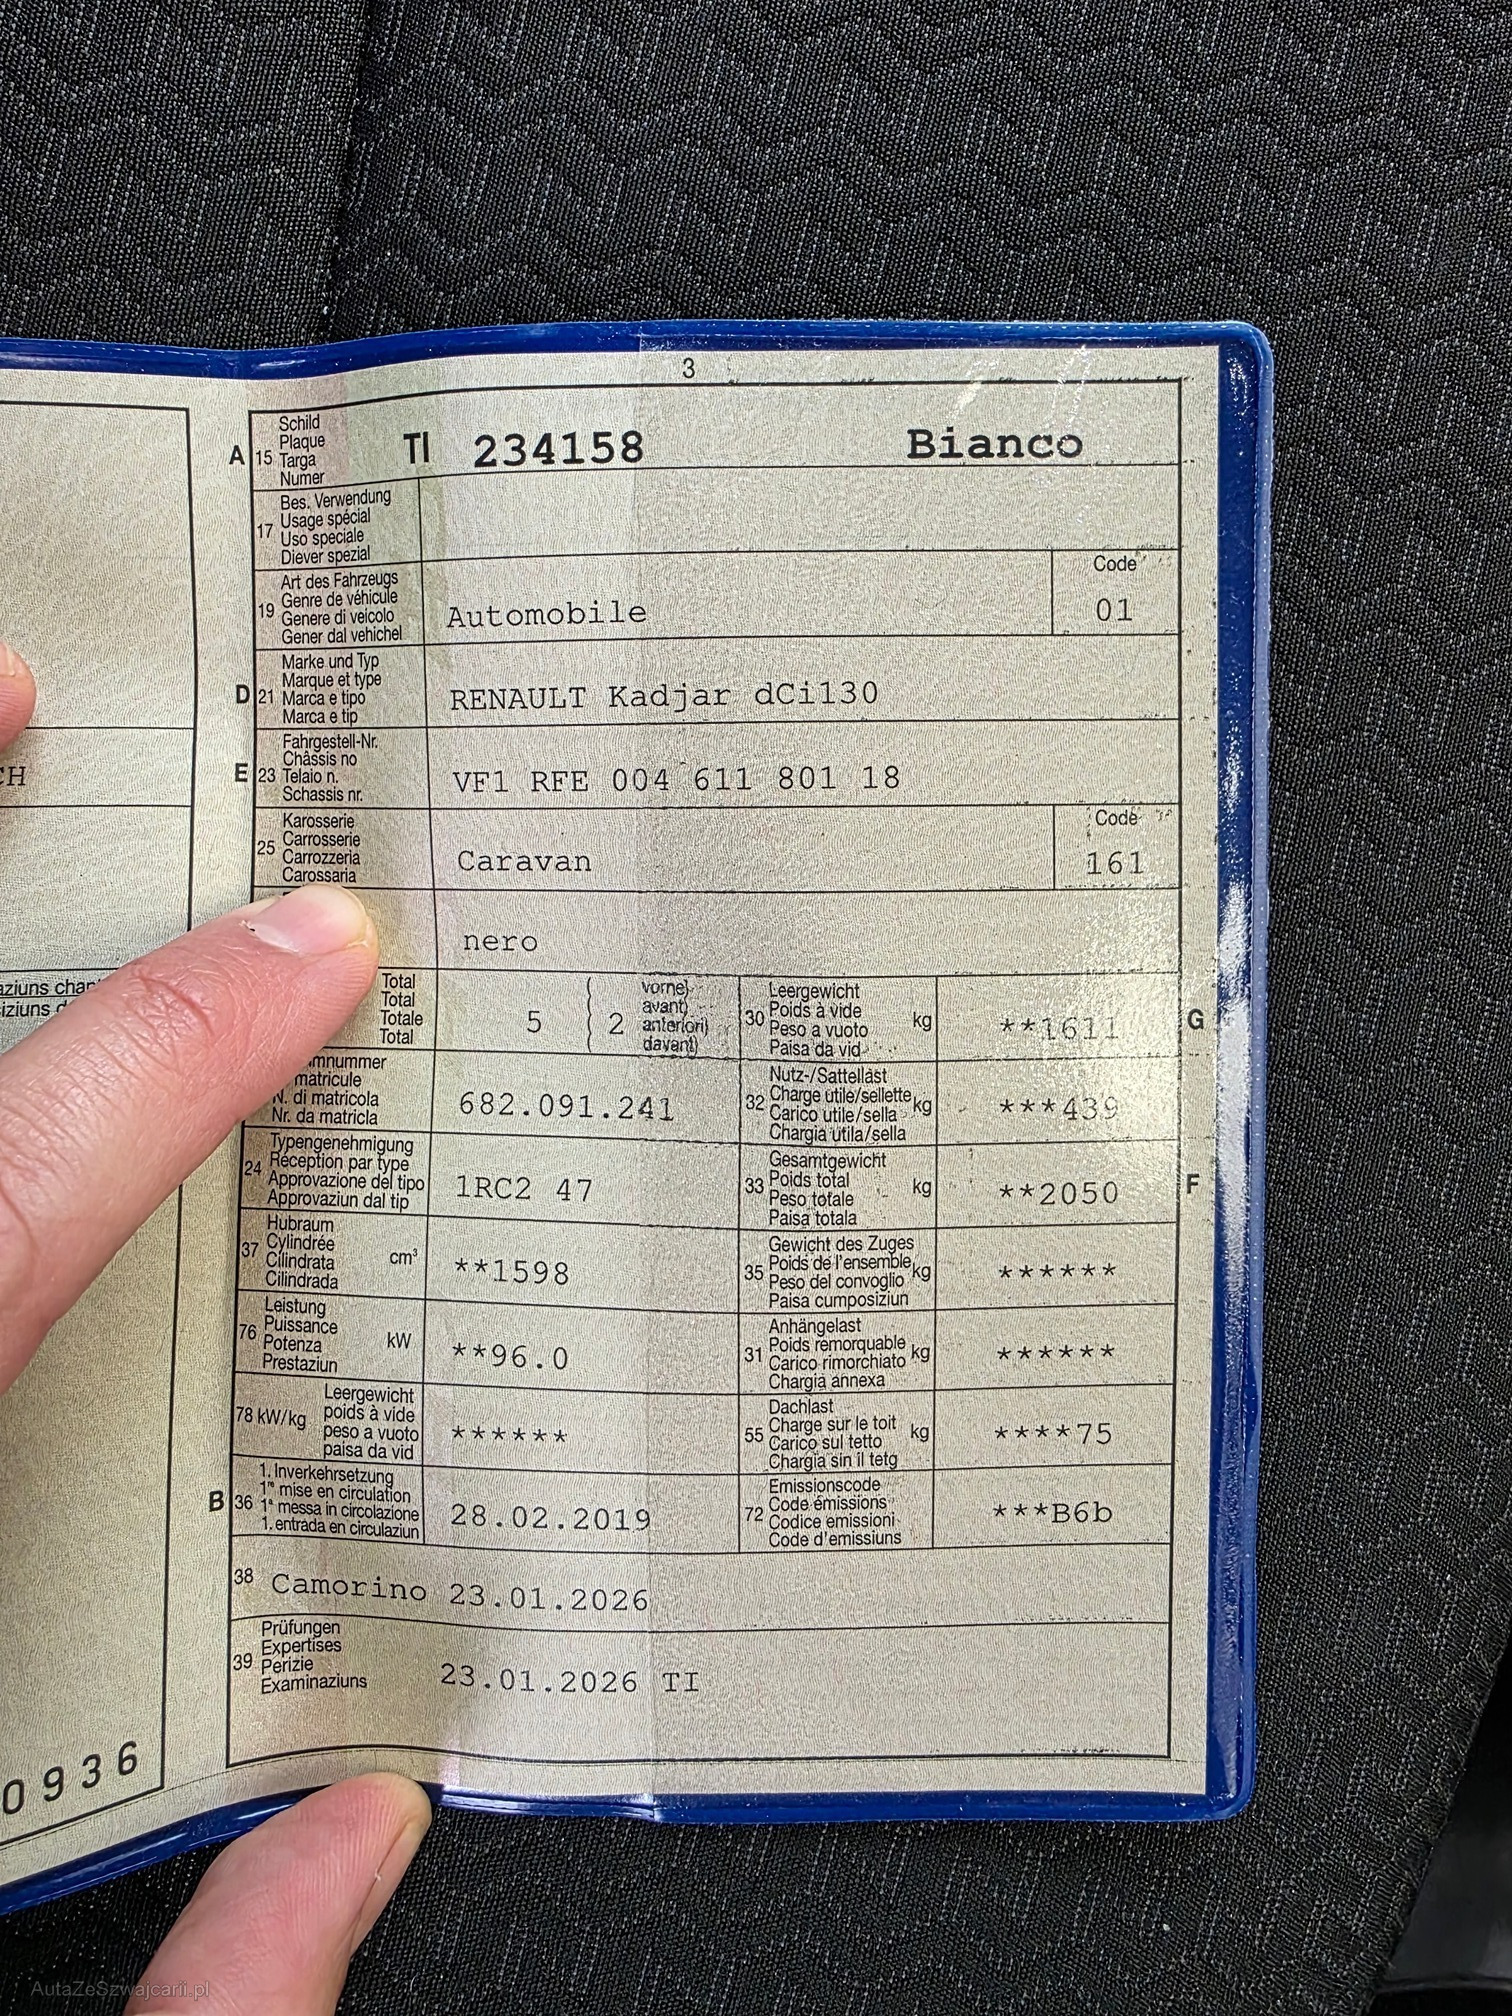 3
A 15 Schild
Plaque
Targa
Numer
TI 234158 Bianco
17 Bes. Verwendung
Usage spécial
Uso speciale
Diever spezial
19 Art des Fahrzeugs
Genre de véhicule
Genere di veicolo
Gener dal vehichel
Automobile
Code
01
D 21 Marke und Typ
Marque et type
Marca e tipo
Marca e tip
RENAULT Kadjar dCi130
E 23 Fahrgestell-Nr.
Châssis no
Telaio n.
Schassis nr.
VF1 RFE 004 611 801 18
25 Karosserie
Carrosserie
Carrozzeria
Carossaria
Caravan
Code
161
nero
Total
Total
Totale
Total
5 2
vorne)
avant)
anteriori)
davant)
30 Leergewicht
Poids à vide
Peso a vuoto
Paisa da vid
kg
**1611
G
mnummer
matricule
N. di matricola
Nr. da matricla
682.091.241
32 Nutz-/Sattellast
Charge utile/sellette
Carico utile/sella
Chargia utila/sella
kg
***439
24 Typengenehmigung
Réception par type
Approvazione del tipo
Approvaziun dal tip
1RC2 47
33 Gesamtgewicht
Poids total
Peso totale
Paisa totala
kg
**2050
F
37 Hubraum
Cylindrée
Cilindrata
Cilindrada
cm³
**1598
35 Gewicht des Zuges
Poids de l'ensemble
Peso del convoglio
Paisa cumposiziun
kg
******
76 Leistung
Puissance
Potenza
Prestaziun
kW
**96.0
31 Anhängelast
Poids remorquable
Carico rimorchiato
Chargia annexa
kg
******
78 kW/kg
Leergewicht
poids à vide
peso a vuoto
paisa da vid
******
55 Dachlast
Charge sur le toit
Carico sul tetto
Chargia sin il tetg
kg
****75
B 36 1. Inverkehrsetzung
1re mise en circulation
1a messa in circolazione
1. entrada en circulaziun
28.02.2019
72 Emissionscode
Code émissions
Codice emissioni
Code d'emissiuns
***B6b
38 Camorino 23.01.2026
39 Prüfungen
Expertises
Perizie
Examinaziuns
23.01.2026 TI
CH
0936
AutaZeSzwajcarii.pl